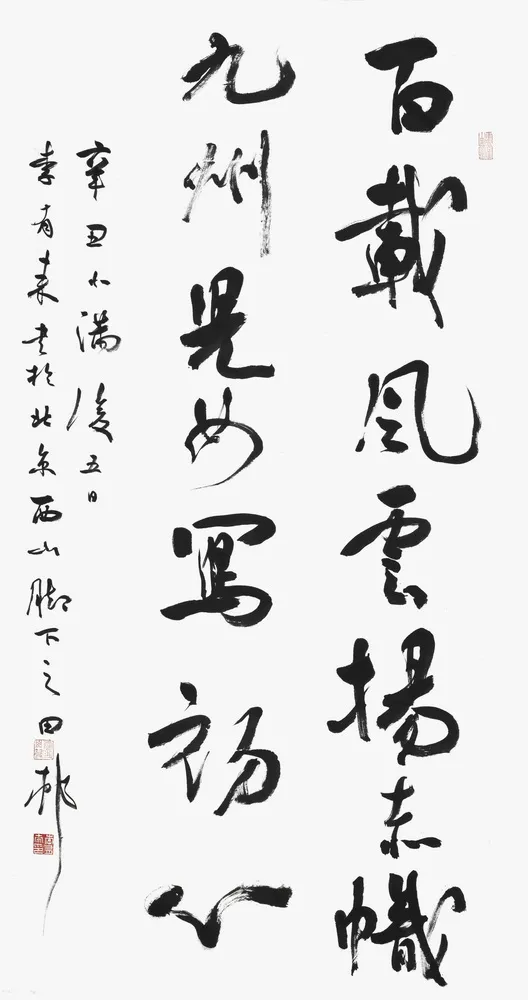 百載風雲揚赤幟
九州兒女寫初心
辛丑小滿後五日
李有来書於北京西山脚下之田邨